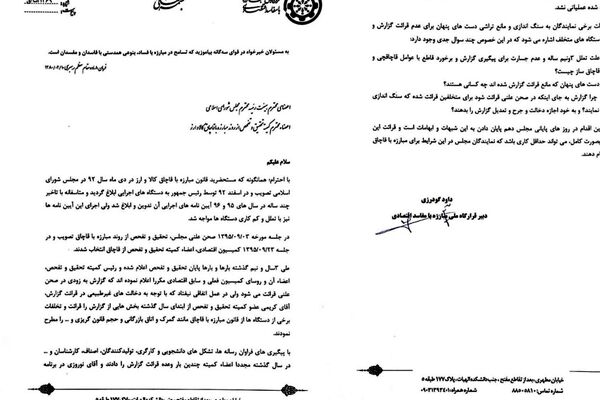 به مسئولان خیرخواه در قوای سه‌گانه بیاموزید که تسامح در مبارزه با فساد، بنوعی همدستی با فاسدان و مفسدان است.
اعضای محترم هیئت رئیسه محترم مجلس شورای اسلامی
اعضاء محترم کمیته تحقیق و تفحص از روند مبارزه با قاچاق کالا و ارز
سلام علیکم
با احترام؛ همانگونه که مستحضرید قانون مبارزه با قاچاق کالا و ارز در دی ماه سال ۹۲ در مجلس شورای
اسلامی تصویب و در اسفند ۹۲ توسط رئیس جمهور به دستگاه های اجرایی ابلاغ گردید و متاسفانه با تاخیر
چند ساله در سال های ۹۵ و ۹۶ آیین نامه های اجرایی آن تدوین و ابلاغ شد ولی اجرای این آیین نامه ها
نیز با تعلل و کم کاری دستگاه ها مواجه شد.
در جلسه مورخه ۱۳۹۵/۰۹/۰۳ صحن علنی مجلس، تحقیق و تفحص از روند مبارزه با قاچاق تصویب و در
جلسه ۱۳۹۵/۰۹/۲۳ کمیسیون اقتصادی، اعضاء کمیته تحقیق و تفحص انتخاب شدند.
طی ۳سال و نیم گذشته بارها و بارها پایان تحقیق و تفحص اعلام شده و رئیس کمیته تحقیق و تفحص،
اعضاء آن و روسای کمیسیون فعلی و سابق اقتصادی مکررا اعلام نموده اند که گزارش به زودی در صحن
علنی قرائت می شود ولی در عمل اتفاقی نیفتاد که با توجه به دخالت های غیرطبیعی در قرائت گزارش،
آقای کریمی عضو کمیته تحقیق و تفحص از ابتدای سال گذشته بخش هایی از گزارش را قرائت و تخلفات
برخی از دستگاه ها از قانون مبارزه با قاچاق مانند گمرک و اتاق بازرگانی و حجم قانون گریزی و ... را مطرح
نمودند.
با پیگیری های فراوان رسانه ها، تشکل های دانشجویی و کارگری، تولیدکنندگان، اصناف، کارشناسان و ...
در سال گذشته مجددا اعضاء کمیته چندین بار وعده قرائت گزارش را دادند و آقای نوروزی در برنامه
خیابان مطهری، بعد از تقاطع مفتح
شده عملیاتی نشد.
ات برخی نمایندگان به سنگ اندازی و مانع تراشی دست های پنهان برای عدم قرائت گزارش و
دستگاه های متخلف اشاره می شود که در این خصوص چند سوال جدی وجود دارد:
علت تعلل ۳ونیم ساله و عدم جسارت برای پیگیری گزارش و برخورد قاطع با عوامل قاچاقچی و
قاچاق ساز چیست؟
دست های پنهان که مانع قرائت گزارش شده اند چه کسانی هستند؟
چرا گزارش به جای اینکه در صحن علنی قرائت شود برای متخلفین قرائت شده که سنگ اندازی
نمایند؟ و به خود اجازه دخالت و جرح و تعدیل گزارش را بدهند؟
ین اقدام در روز های پایانی مجلس دهم پایان دادن به این شبهات و ابهامات است و قرائت این
بصورت کامل، می تواند حداقل کاری باشد که نمایندگان مجلس در این شرایط برای مبارزه با قاچاق
ام دهند.
داود گودرزی
دبیر قرارگاه ملی مبارزه با مفاسد اقتصادی
خیابان مطهری، بعد از تقاطع مفتح ، جنب دانشکده الهیات، پلاک ۱۷۷ طبقه ۵
شماره تماس: ۸۸۵۰۵۸۱۰